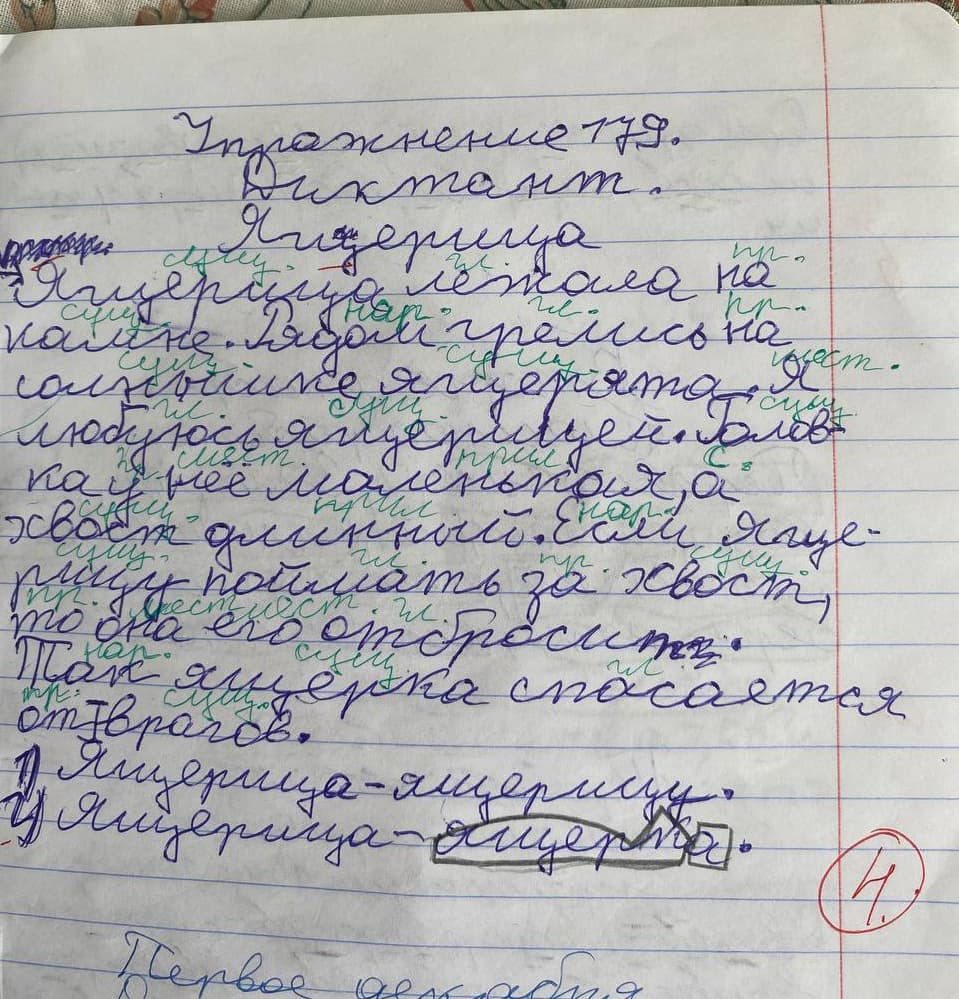 Упражнение 179.
Диктант.
Ящерица
сущ. гл. пр.
Ящерица лежала на
сущ. нар. гл. пр.
камне. Рядом грелись на
сущ. сущ. мест.
солнышке ящерята. Я
гл. сущ. сущ.
любуюсь ящерицей. Голов-
мест. прил с.
ка у неё маленькая, а
сущ. прил нар.
хвост длинный. Если яще-
сущ. гл. пр. сущ.
рицу поймать за хвост,
пр. мест мест. гл.
то она его отбросит.
нар. сущ гл
Так ящерка спасается
пр. сущ.
от врагов.
1) Ящерица-ящерицу.
2) Ящерица-ящерка.
4.
Первое декабря